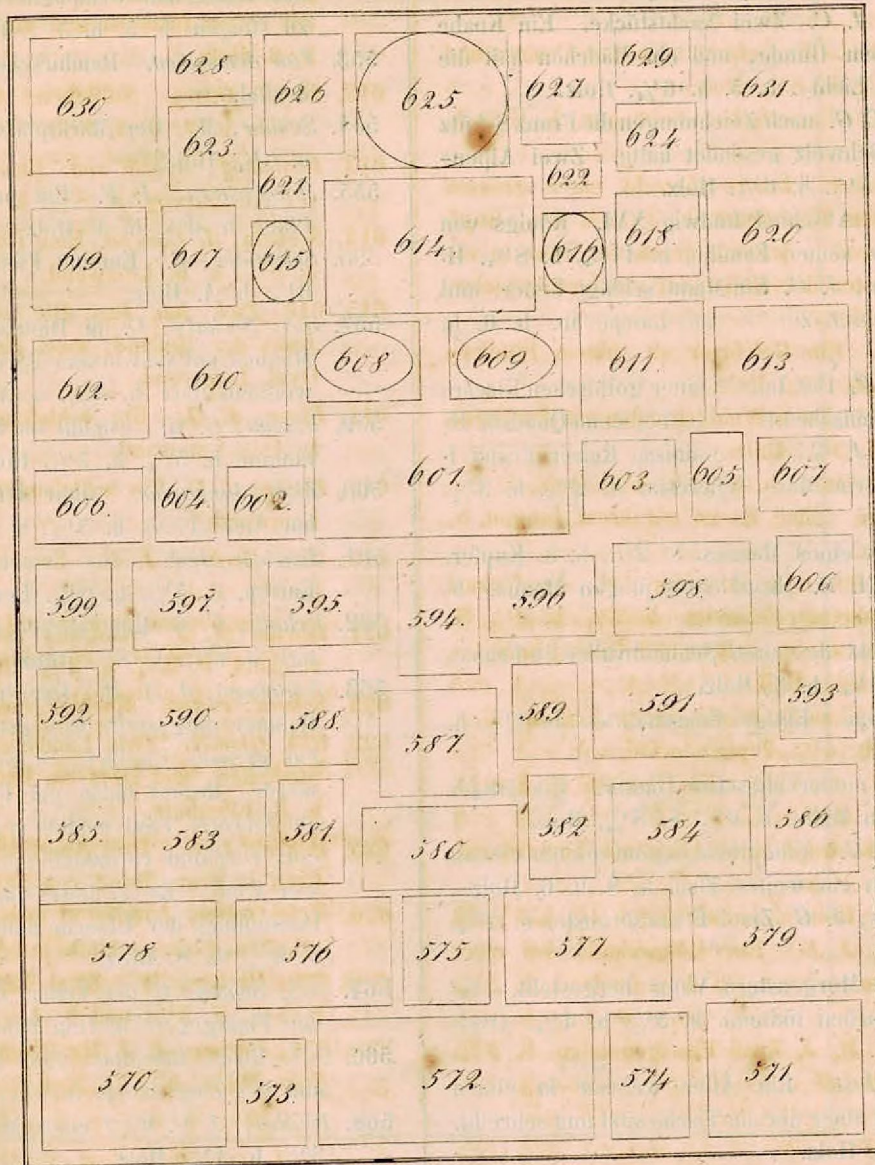 628. 629.
630. 626. 625. 627. 631.
623. 624.
621. 622.
619. 617. 615. 614. 616. 618. 620.
612. 610. 608. 609. 611. 613.
606. 604. 602. 601. 603. 605. 607.
599. 597. 595. 594. 596. 598. 600.
592. 590. 588. 587. 589. 591. 593.
585. 583. 581. 580. 582. 584. 586.
578. 576. 575. 577. 579.
570. 573. 572. 574. 571.